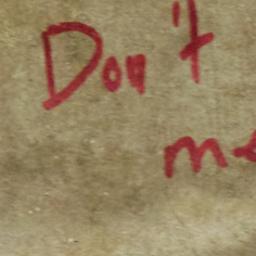 Don't
me